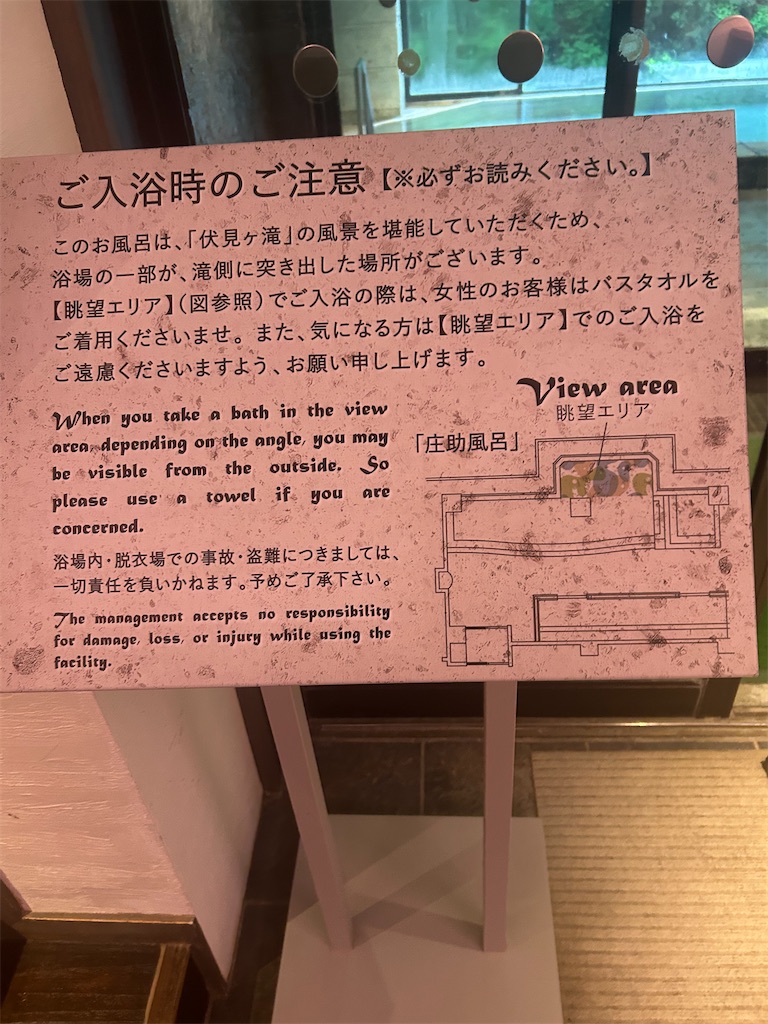 ご入浴時のご注意【※必ずお読みください。】
このお風呂は、「伏見ヶ滝」の風景を堪能していただくため、
浴場の一部が、滝側に突き出した場所がございます。
【眺望エリア】（図参照）でご入浴の際は、女性のお客様はバスタオルを
ご着用くださいませ。また、気になる方は【眺望エリア】でのご入浴を
ご遠慮くださいますよう、お願い申し上げます。
When you take a bath in the view
area, depending on the angle, you may
be visible from the outside. So
please use a towel if you are
concerned.
浴場内・脱衣場での事故・盗難につきましては、
一切責任を負いかねます。予めご了承下さい。
The management accepts no responsibility
for damage, loss, or injury while using the
facility.
View area
眺望エリア
「庄助風呂」